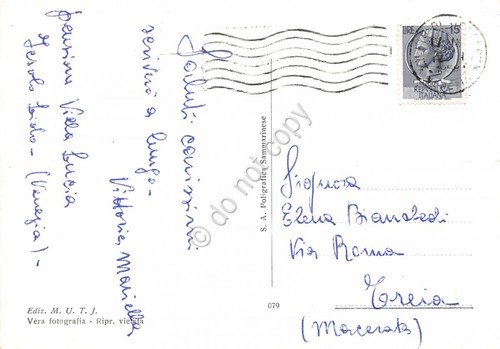 Saluti carissimi
scriverò a lungo -
Vittoria, Mariella
pensione Villa Lucia
Jesolo Lido - (Venezia) -
Ediz. M. U. T. J.
Vera fotografia - Ripr. vietata
S. A. Poligrafica Sammarinese
079
LIRE 15
Signora
Elena
Via Roma
Treia
(Macerata)
© do not copy